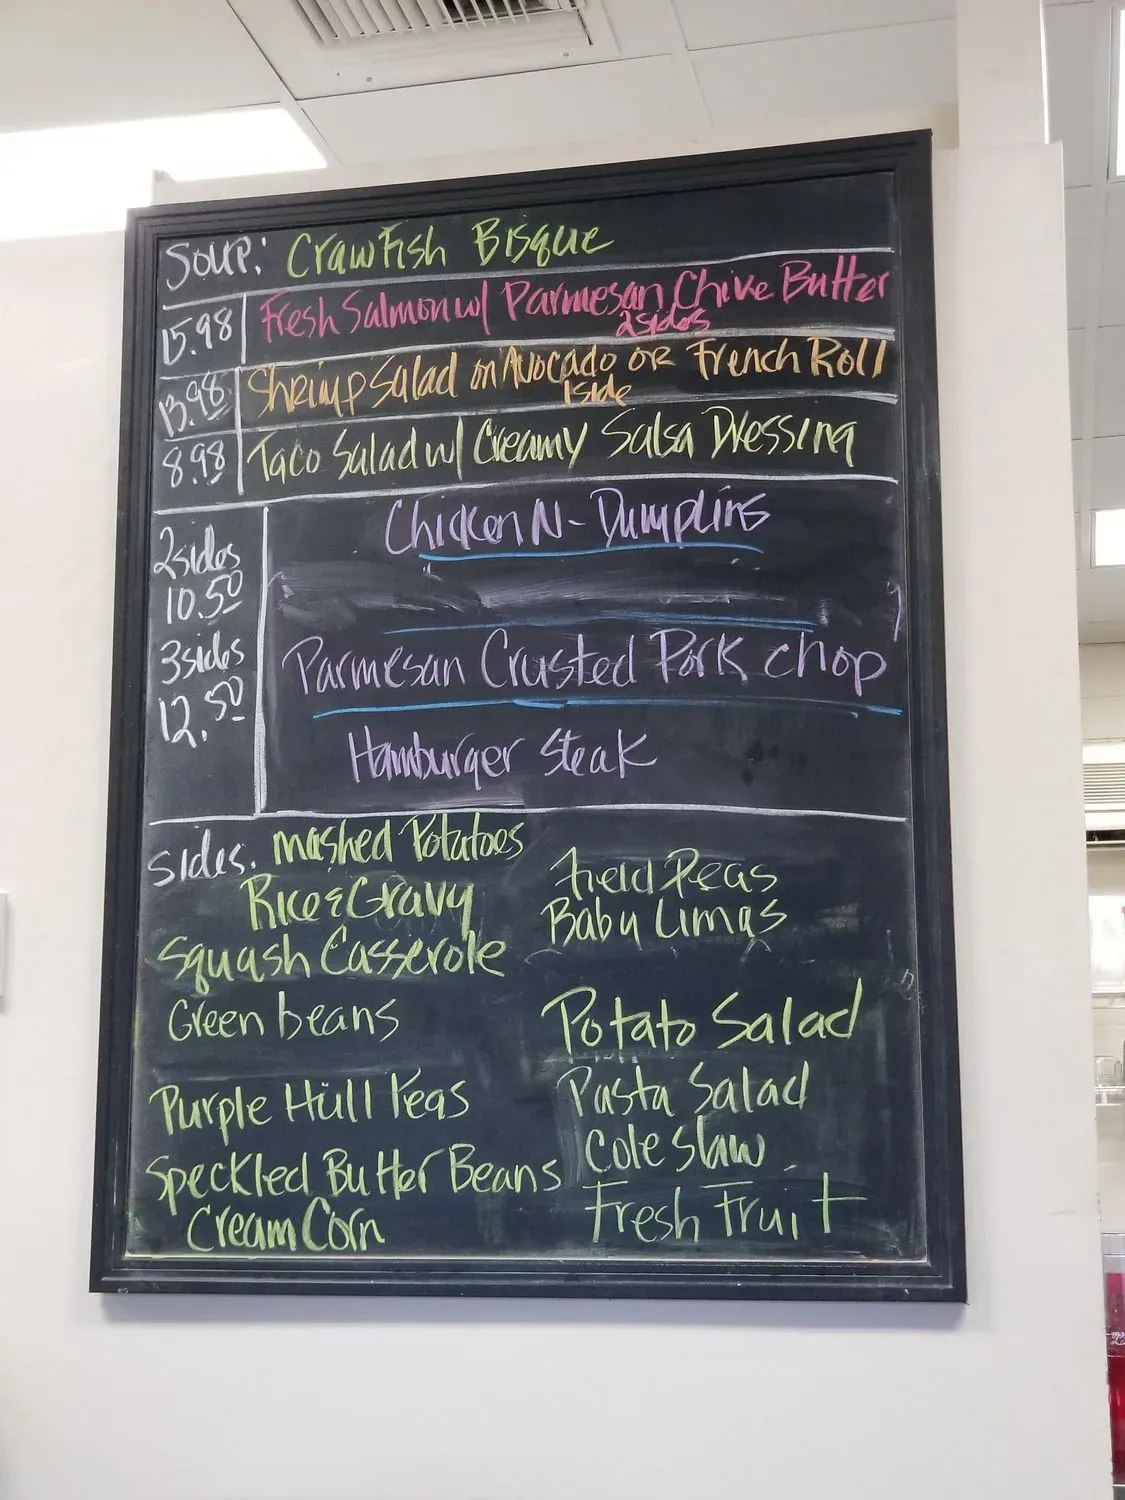 Soup: Crawfish Bisque
15.98 Fresh Salmon w/ Parmesan Chive Butter
2 sides
13.98 Shrimp Salad on Avocado or French Roll
1 side
8.98 Taco Salad w/ Creamy Salsa Dressing
Chicken N-Dumplins
2 sides
10.50
3 sides
12.50
Parmesan Crusted Pork chop
Hamburger Steak
Sides. mashed Potatoes
Rice & Gravy
Squash Casserole
Green beans
Purple Hull Peas
Speckled Butter Beans
Cream Corn
Field Peas
Baby Limas
Potato Salad
Pasta Salad
Coleslaw
Fresh Fruit